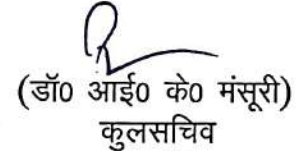 (डॉ0 आई0 के0 मंसूरी)
कुलसचिव